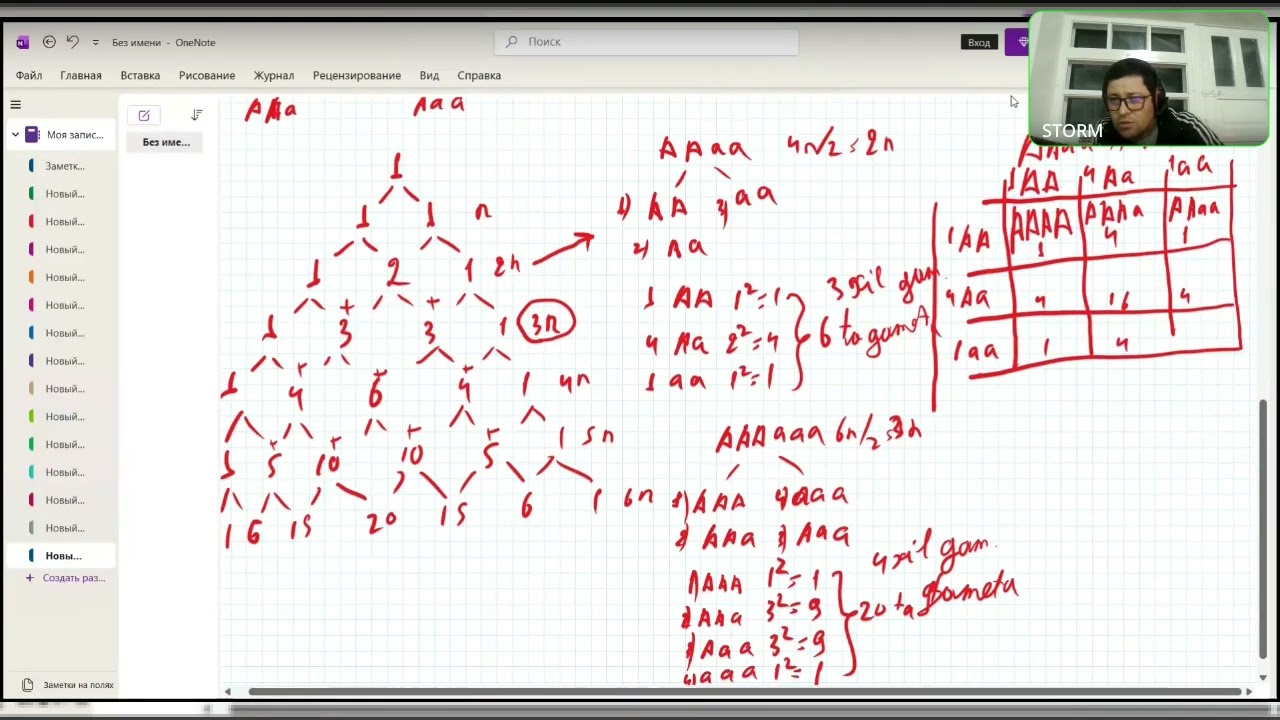 Без имени - OneNote
Поиск
Вход
Файл Главная Вставка Рисование Журнал Рецензирование Вид Справка
Моя запис...
Без име...
Заметк...
Новый...
Новый...
Новый...
Новый...
Новый...
Новый...
Новый...
Новый...
Новый...
Новый...
Новый...
Новый...
Новый...
Новы...
+ Создать раз...
Заметки на полях
STORM
AAa Aaa
1
1 1 n
1 2 1 2n
1 + 3 + 3 1 3n
1 + 4 + 6 + 4 1 4n
1 + 5 + 10 + 10 + 5 1 5n
1 6 15 20 15 6 1 6n
AAaa 4n/2=2n
1) AA 3) aa
2) Aa
1 AA 1²=1
4 Aa 2²=4
1 aa 1²=1
3 xil gam.
6 ta gamet
AAAaaa 6n/2=3n
1) AAA 4) aaa
2) AAa 3) Aaa
1) AAA 1²=1
2) AAa 3²=9
3) Aaa 3²=9
4) aaa 1²=1
4 xil gam.
20 ta gameta
1AA 4Aa 1aa
1AA AAAA 1 AAAa 4 AAaa 1
4Aa 4 16 4
1aa 1 4